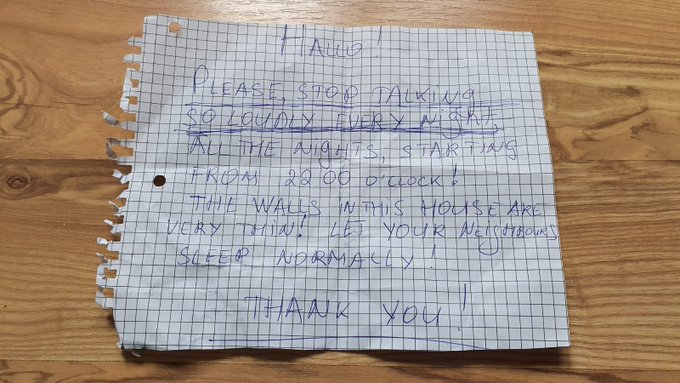 HALLO!
PLEASE, STOP TALKING
SO LOUDLY EVERY NIGHT,
ALL THE NIGHTS, STARTING
FROM 22 00 O'CLOCK!
THE WALLS IN THIS HOUSE ARE
VERY THIN! LET YOUR NEIGHBOURS
SLEEP NORMALLY!
THANK YOU!